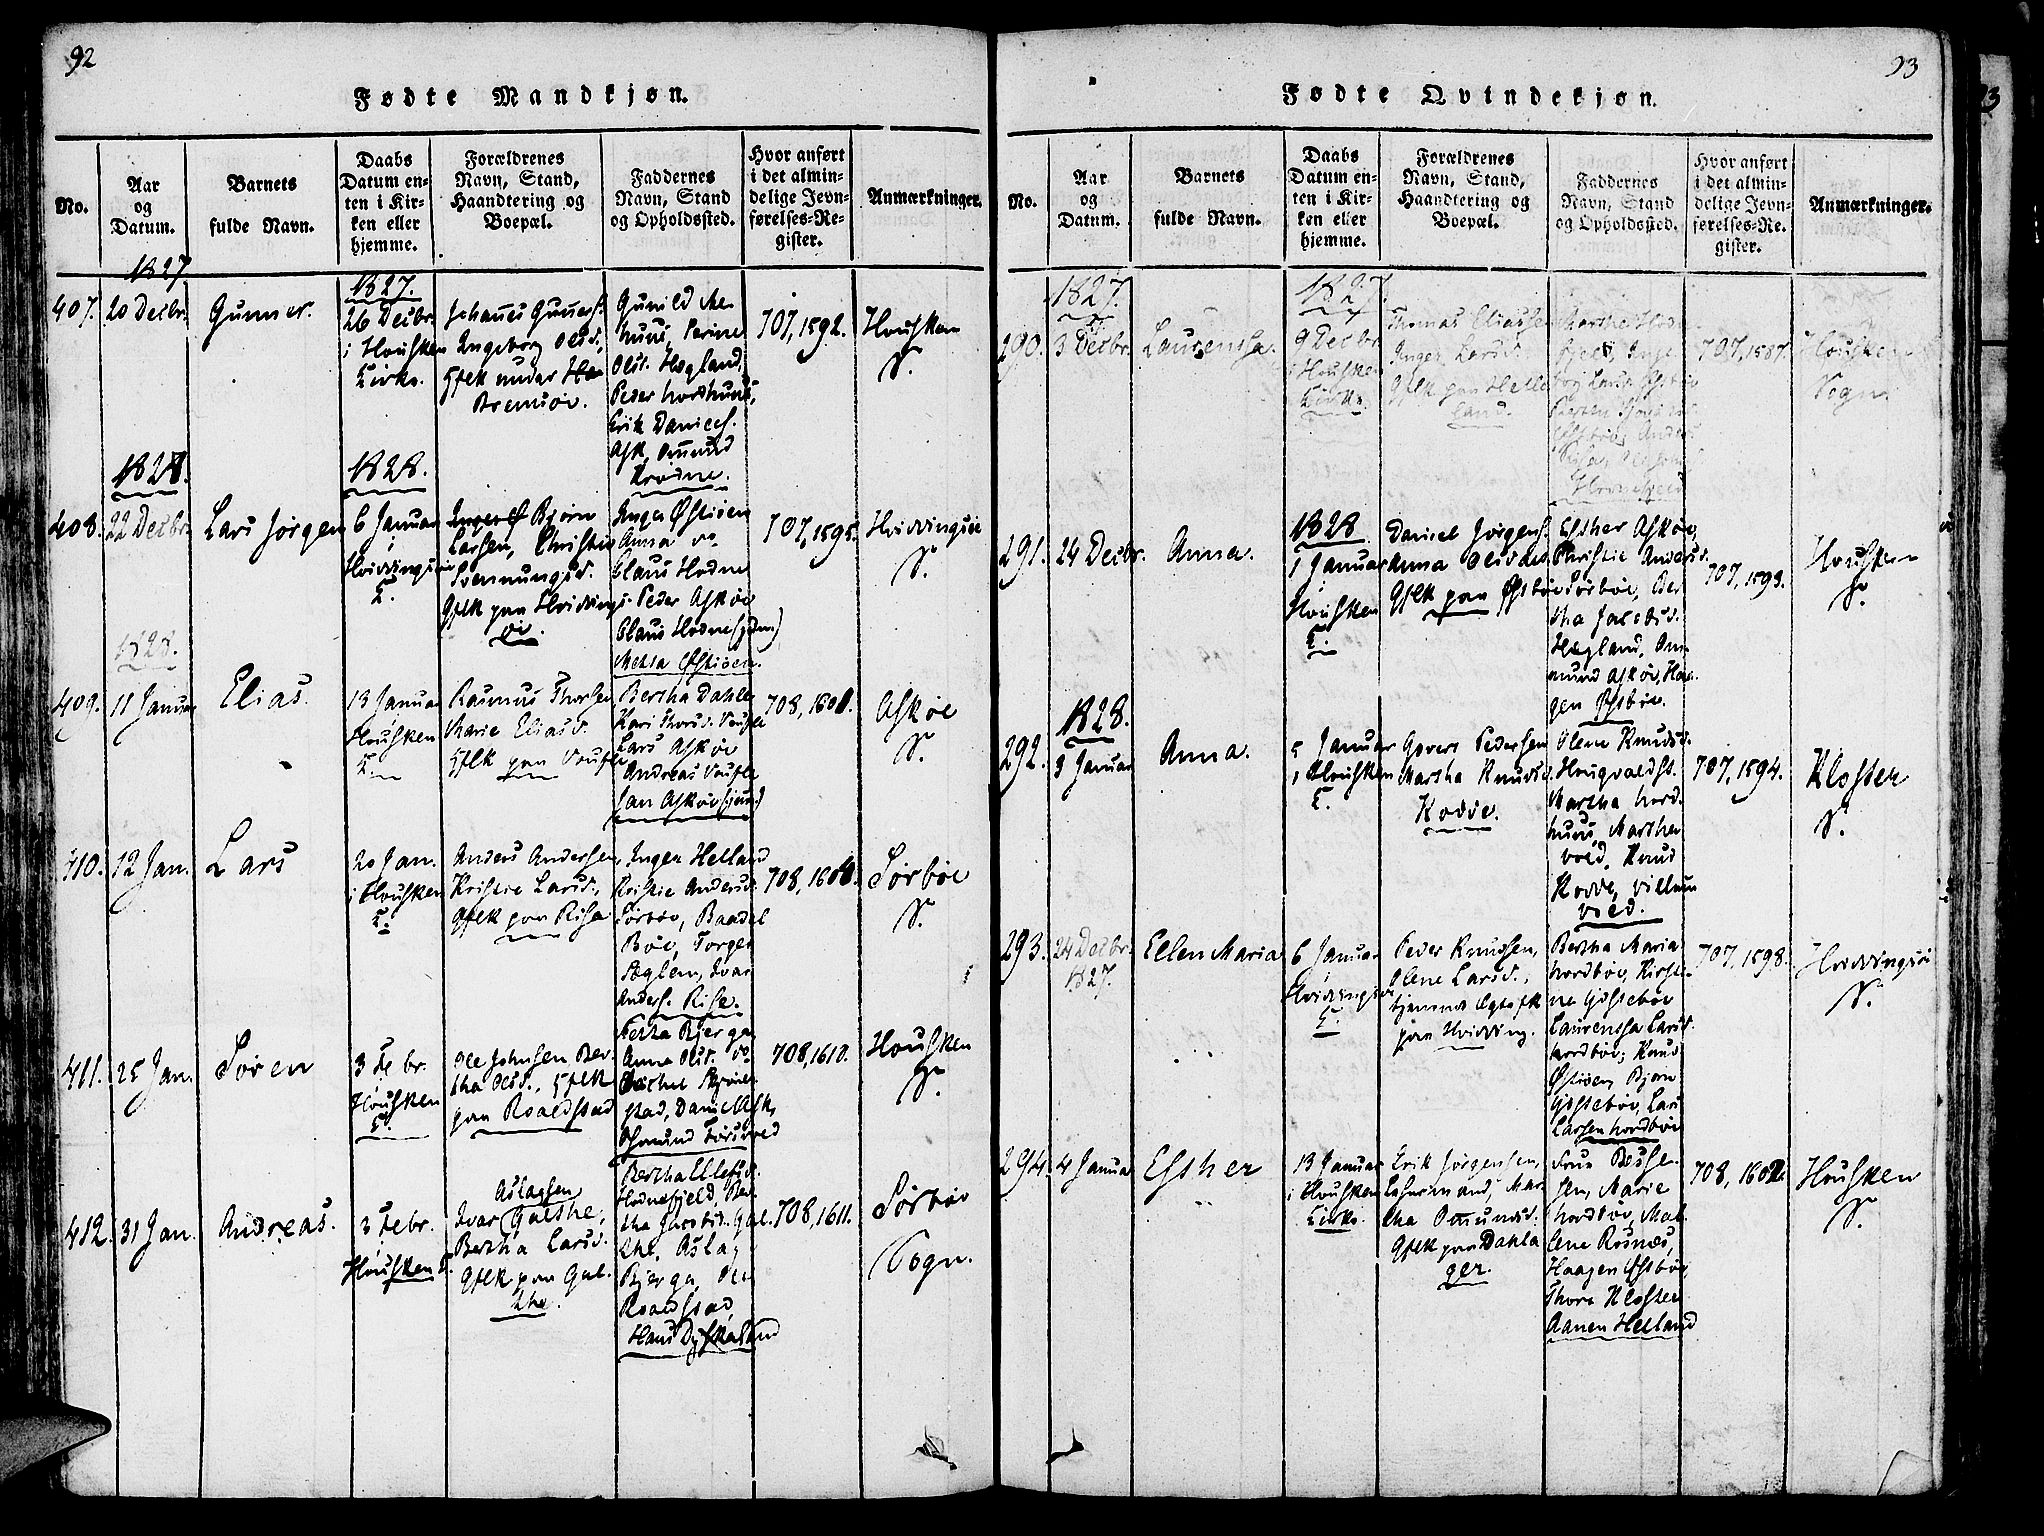 92
Fødte Mandkjøn.
No.
Aar
og
Datum.
Barnets
fulde Navn.
Daabs
Datum en-
ten i Kir-
ken eller
hjemme.
Forældrenes
Navn, Stand,
Haandtering og
Boepæl.
Faddernes
Navn, Stand
og Opholdssted.
Hvor anført
i det almin-
delige Jevn-
førelses-Re-
gister.
Anmærkninger.
1827
407.
20 Decbr.
Gunner.
1827.
26 Decbr.
i Housken
Kirke.
Johanes
Ingeborg Olsd.
Bremsøe.
Gunild
Olsd. Hegland,
Peder Nordhuus,
Erik Daniels.
Ask, Omund
707, 1592.
Housken
S.
1828.
408.
22 Decbr.
Lars Jørgen
1828.
6 Januar
i
Hvidingsøe
K.
Bjørn
Larsen, Christie
Svennungsd.
Gflk paa Hvidings-
øe.
Inger Østisen
Anna
Claus Hodne
Peder Askøe
Claus Hodne
Østisen.
707, 1595.
Hvidingsøe
S.
1828.
409.
11 Januar
Elias.
13 Januar
Housken
K.
Rasmus Thorsen
Marie Eliasd.
Gflk paa
Bertha Dahle
Kari Thorsd.
Lars Askøe
Andreas
Jan Askøe
708, 1600.
Askøe
S.
410.
12 Jan.
Lars
20 Jan.
i Housken
K.
Anders Andersen,
Kristie Larsd.,
Gflk paa Risa
Inger Helland
Kristie Andersd.
Sørbøe, Baadel
Bøe, Torger
Søglem, Ivar
Anders. Rise.
708, 1601.
Sørbøe
S.
411.
25 Jan.
Søren
3 Febr.
Housken
K.
Ole Johnsen Ber-
tha Olsd., Gflk
paa Roaldstad
Bjerga
Anna Olsd.
Rachel
stad, Daniel Ask,
708, 1610.
Housken
S.
412.
31 Jan.
Andreas.
3 Febr.
Housken K.
Aslagsen
Ivar Galthe,
Bertha Larsd.
Gflk paa Gal-
the.
Bertha
Hodnefjeld, Ber-
tha Jacobsd. Gal-
the, Aslag
Bjerga, Ole
Roaldstad,
Hans Dyskeland
708, 1611.
Sørbøe
Sogn.
93
Fødte Qvindekjøn.
No.
Aar
og
Datum.
Barnets
fulde Navn.
Daabs
Datum en-
ten i Kir-
ken eller
hjemme.
Forældrenes
Navn, Stand,
Haandtering og
Boepæl.
Faddernes
Navn, Stand
og Opholdssted.
Hvor anført
i det almin-
delige Jevn-
førelses-Re-
gister.
Anmærkninger.
1827.
290.
3 Decbr.
Laurensa.
1827.
9 Decbr
i Housken
Kirke.
Thomas Eliassen
Inger Larsd.
Gflk paa Helle-
land.
Marthe Hodne-
fjeld, Inge-
707, 1587.
Housken
Sogn.
291.
24 Decbr.
Anna.
1828
1 Januar
i
Housken
K.
Daniel Jørgens.
Anna
Gflk paa Østbøe
Esther Askøe,
Christie Andersd.
Sørbøe, Ber-
tha Jacobsd.
Hegland, Om-
mund Askøe, Haa-
gen Østbøe.
707, 1593.
Housken
S.
1828.
292.
3 Januar
Anna.
5 Januar
i Housken
K.
Govert Pedersen
Martha Knudsd.
Kodde.
Olene Knudsd.
Hougvaldst.
Martha Nord-
huus, Marthe
Voed, Knud
Kodde, Villum
Voed.
707, 1594.
Kloster
S.
293.
24 Decbr.
1827.
Ellen Maria
6 Januar
i
Hvidingsøe
K.
Peder Knudsen,
Olene Larsd.,
paa Hvidding.
Bertha Maria
Nordbøe, Kirsti-
ne Gjøstebøe
Laurensa Larsd.
Nordbøe, Knud
Østisen, Bjørn
Gjøstebøe, Lars
Larsen Nordbøe
707, 1598.
Hvidingsøe
S.
294.
4 Januar
Esther
13 Januar
i Housken
Kirke.
Erik Jørgensen,
Lehnsmand, Mar-
tha Omundsd.
Gflk paa Dahla
ger.
Frue
sen, Marie
Nordbøe, Mal-
lene Rosnæs,
Haagen Østbøe,
Thore Kloster
Aanen Helland
708, 1602.
Housken
S.